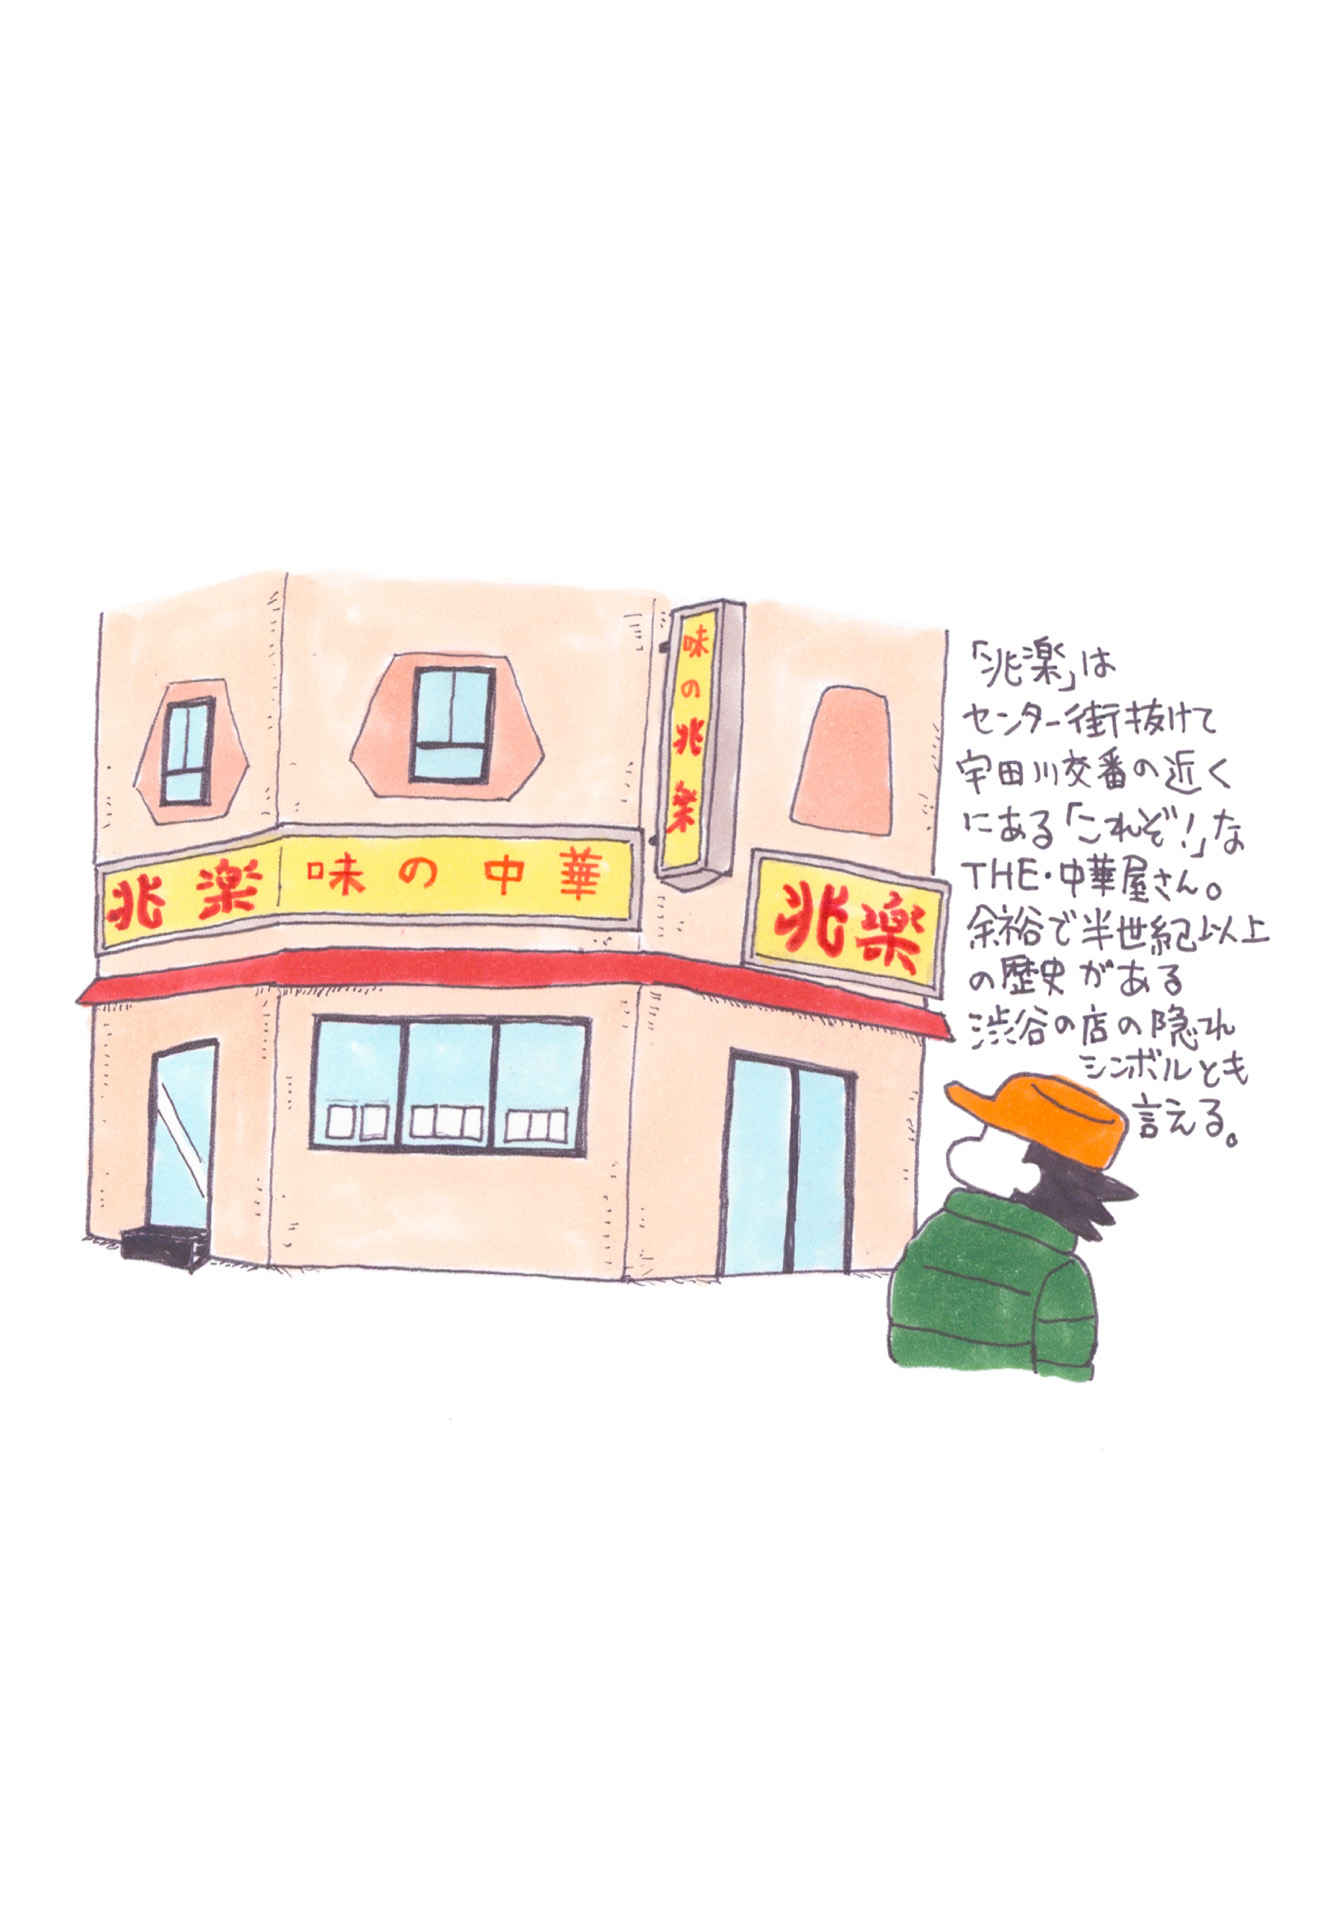 兆楽 味の中華
味の兆楽
兆楽
「兆楽」は
センター街抜けて
宇田川交番の近く
にある「これぞ!」な
THE・中華屋さん。
余裕で半世紀以上
の歴史がある
渋谷の店の隠れ
シンボルとも
言える。